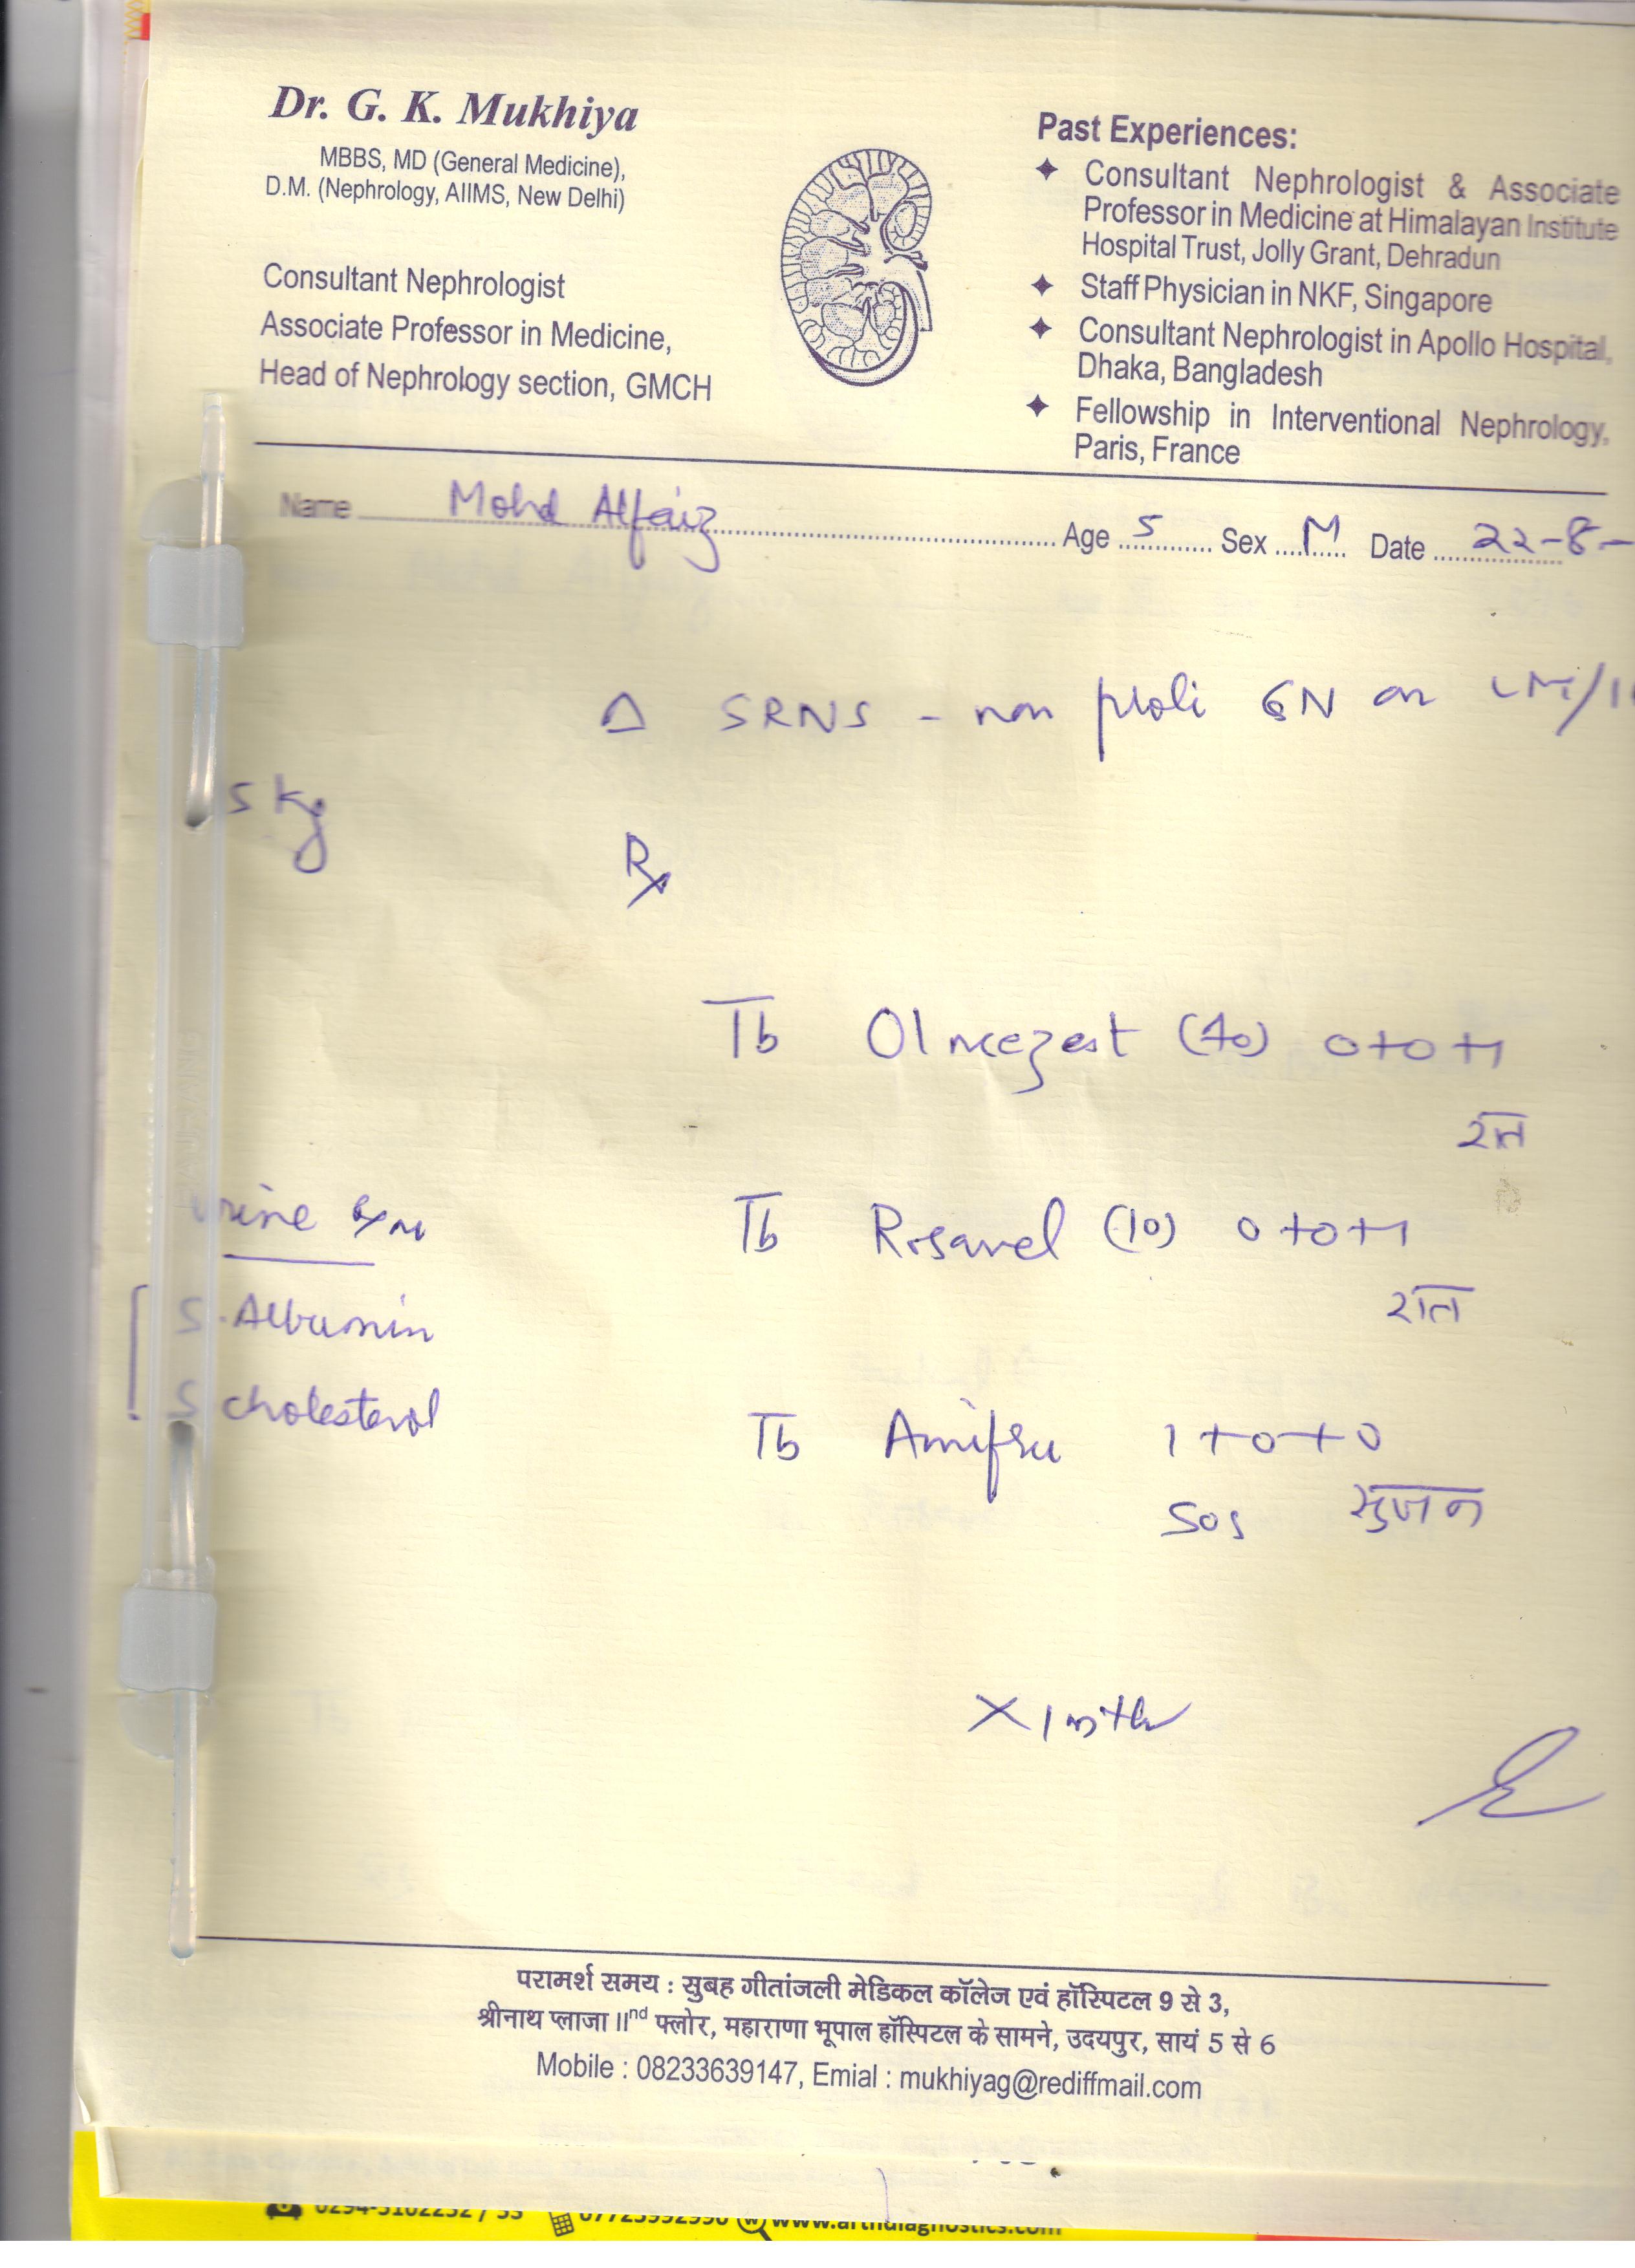 Dr. G. K. Mukhiya
MBBS, MD (General Medicine),
D.M. (Nephrology, AIIMS, New Delhi)
Consultant Nephrologist
Associate Professor in Medicine,
Head of Nephrology section, GMCH
Past Experiences:
Consultant Nephrologist & Associate
Professor in Medicine at Himalayan Institute
Hospital Trust, Jolly Grant, Dehradun
Staff Physician in NKF, Singapore
Consultant Nephrologist in Apollo Hospital,
Dhaka, Bangladesh
Fellowship in Interventional Nephrology,
Paris, France
Name Mohd Alfaiz Age 5 Sex M Date 22-8-
Δ SRNS - non proli GN on LM/
5 kg
Rx
Tb Olmezest (40) 0+0+1
रात
Tb Rosavel (10) 0+0+1
रात
Tb Amifru 1+0+0
SOS सुजन
urine
S. Albumin
S cholesterol
X 1 mth
परामर्श समय : सुबह गीतांजली मेडिकल कॉलेज एवं हॉस्पिटल 9 से 3,
श्रीनाथ प्लाजा IInd फ्लोर, महाराणा भूपाल हॉस्पिटल के सामने, उदयपुर, सायं 5 से 6
Mobile : 08233639147, Emial : mukhiyag@rediffmail.com
www.arthdiagnostics.com